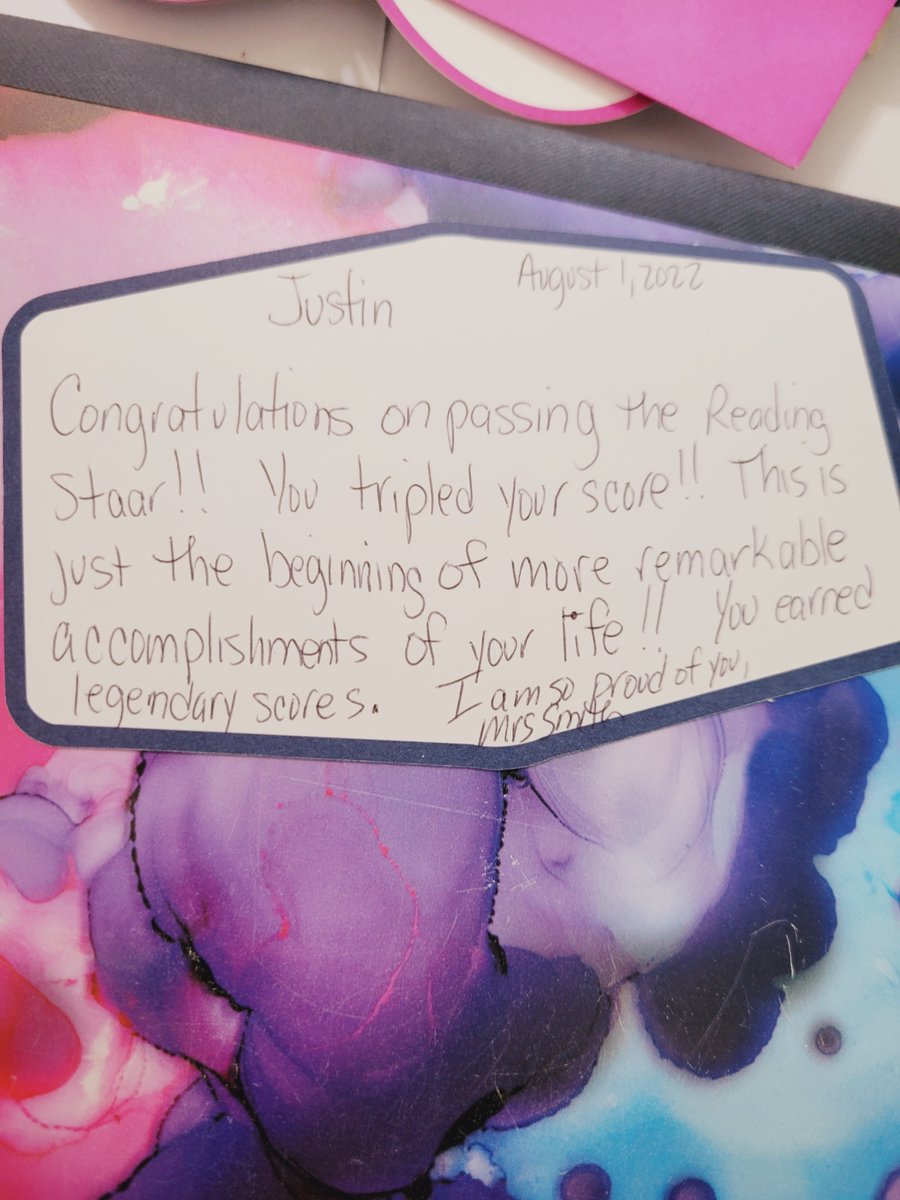 Justin August 1, 2022
Congratulations on passing the Reading
Staar!! You tripled your score!! This is
just the beginning of more remarkable
accomplishments of your life!! You earned
legendary scores. I am so proud of you,
Mrs Smith